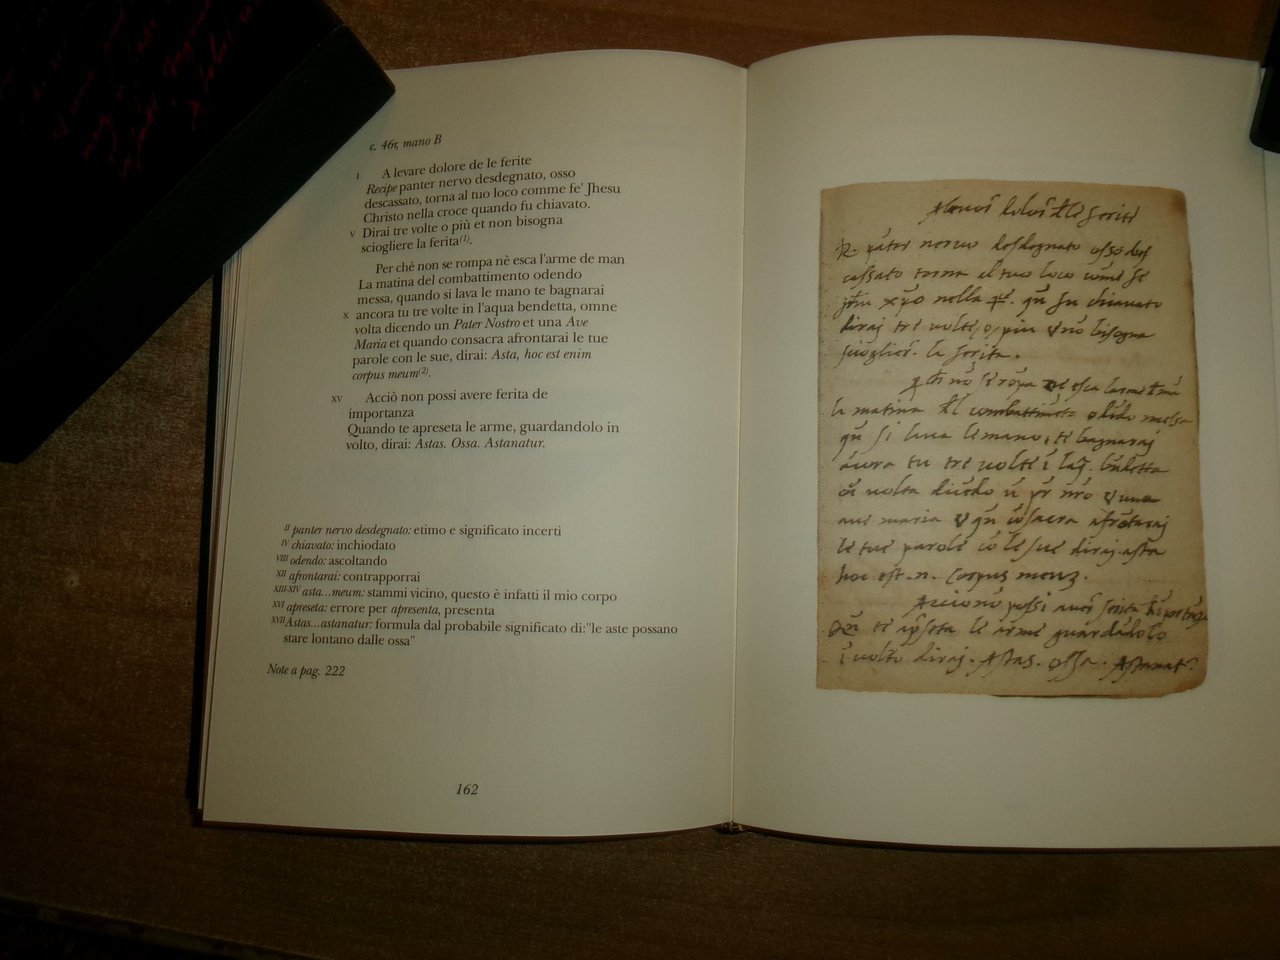 c. 46r, mano B
I A levare dolore de le ferite
Recipe panter nervo desdegnato, osso
descassato, torna al tuo loco comme fe' Jhesu
Christo nella croce quando fu chiavato.
V Dirai tre volte o più et non bisogna
sciogliere la ferita(1).
Per chè non se rompa nè esca l'arme de man
La matina del combattimento odendo
messa, quando si lava le mano te bagnarai
X ancora tu tre volte in l'aqua bendetta, omne
volta dicendo un Pater Nostro et una Ave
Maria et quando consacra afrontarai le tue
parole con le sue, dirai: Asta, hoc est enim
corpus meum(2).
XV Acciò non possi avere ferita de
importanza
Quando te apreseta le arme, guardandolo in
volto, dirai: Astas. Ossa. Astanatur.
II panter nervo desdegnato: etimo e significato incerti
IV chiavato: inchiodato
VIII odendo: ascoltando
XII afrontarai: contrapporrai
XIII-XIV asta...meum: stammi vicino, questo è infatti il mio corpo
XVI apreseta: errore per apresenta, presenta
XVII Astas...astanatur: formula dal probabile significato di:"le aste possano
stare lontano dalle ossa"
Note a pag. 222
162
nervo desdegnato osso des
cassato torna al tuo loco come fe
xpo nella fu chiavato
diraj tre volte, o, piu no bisogna
la ferita.
la matina combattimeto odedo messa
si lava le mano, te bagnaraj
acora tu tre volte i
volta dicedo
ave maria cosacra afrotaraj
le tue parole co le sue diraj. asta
hoc est. n. Corpus meuz.
Accio no possi
te le arme guardadolo
i volto diraj. Astas. Ossa. Astanat.